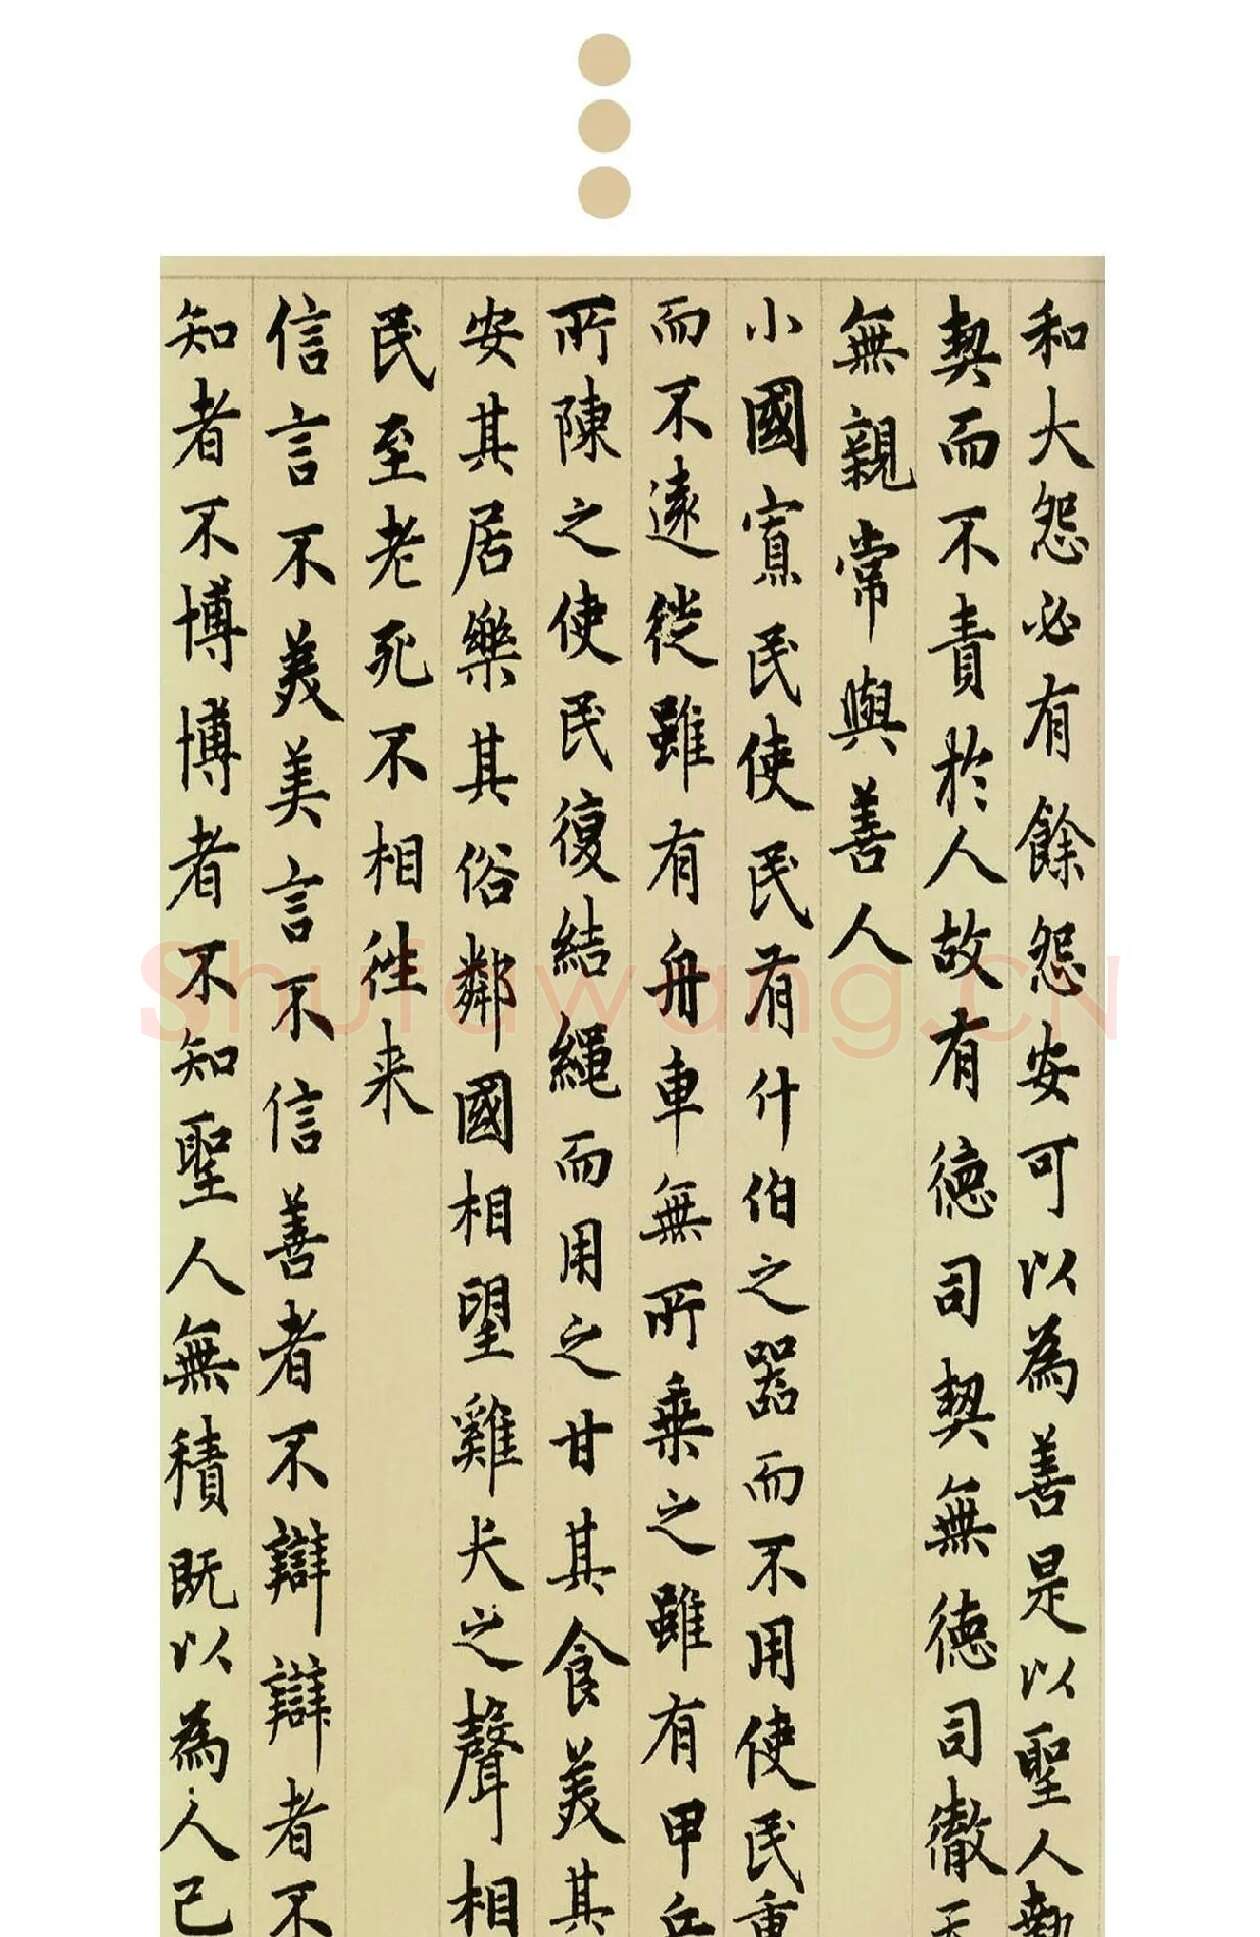 和大怨必有餘怨安可以為善是以聖人執
契而不責於人故有德司契無德司徹天
無親常與善人
小國寡民使民有什伯之器而不用使民重
而不遠徙雖有舟車無所乗之雖有甲兵
所陳之使民復結繩而用之甘其食美其
安其居樂其俗鄰國相望雞犬之聲相
民至老死不相往来
信言不美美言不信善者不辯辯者不
知者不博博者不知聖人無積既以為人己
Shufawang.CN